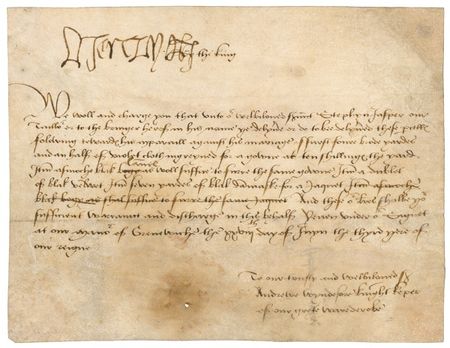 By the king
We woll and charge you that unto oʳ welbiloved Stephyn Jasper our
Taillor or to the bringer herof in his name ye delyver or do to be delyvred thise
folowing towards his apparaill against his mariage ffurst foure brode yardes
and an half of violet cloth ingreyned for a gowne at ten shillings the yard
Itm asmoche blak as woll suffise to furre the same gowne Itm a dublet
of blak velvet Itm seven yardes of blak Damaske for a Jaquet Itm asmoche
blak as shall suffise to furre the same Jaquet And thise oʳ lres shalbe yoʳ
sufficient warrant and discharge in this behalf Yeven under oʳ Signet
at our manoʳ of Grenewiche the day of the third yere of
our reigne
To our trusty and welbiloved
Andrewe Wyndesore knight keper
of our grete warderobe